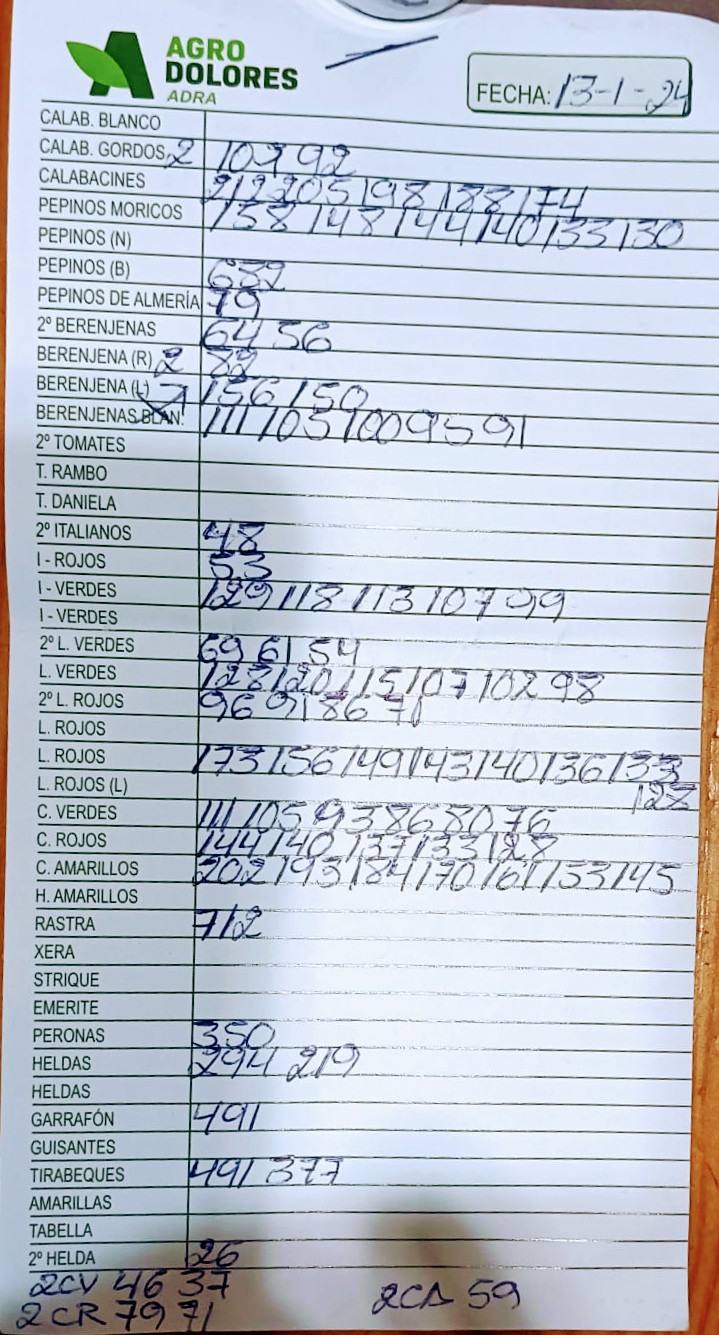 AGRO
DOLORES
ADRA
FECHA: 13-1-24
CALAB. BLANCO
CALAB. GORDOS 2 107 92
CALABACINES 212 205 198 188 174
PEPINOS MORICOS 158 148 144 140 133 130
PEPINOS (N)
PEPINOS (B) 682
PEPINOS DE ALMERÍA 79
2º BERENJENAS 64 56
BERENJENA (R) 2 82
BERENJENA (L) 156 150
BERENJENAS BLAN. 111 105 100 95 91
2º TOMATES
T. RAMBO
T. DANIELA
2º ITALIANOS 48
I - ROJOS 53
I - VERDES 129 118 113 107 99
I - VERDES
2º L. VERDES 69 61 54
L. VERDES 128 120 115 107 102 98
2º L. ROJOS 96 91 86 71
L. ROJOS
L. ROJOS 173 156 149 143 140 136 133
L. ROJOS (L) 128
C. VERDES 111 105 93 86 80 76
C. ROJOS 144 140 137 133 128
C. AMARILLOS 202 193 184 170 161 153 145
H. AMARILLOS
RASTRA 712
XERA
STRIQUE
EMERITE
PERONAS 350
HELDAS 294 219
HELDAS
GARRAFÓN 491
GUISANTES
TIRABEQUES 491 377
AMARILLAS
TABELLA
2º HELDA 26
2CV 46 37
2CA 59
2CR 79 71